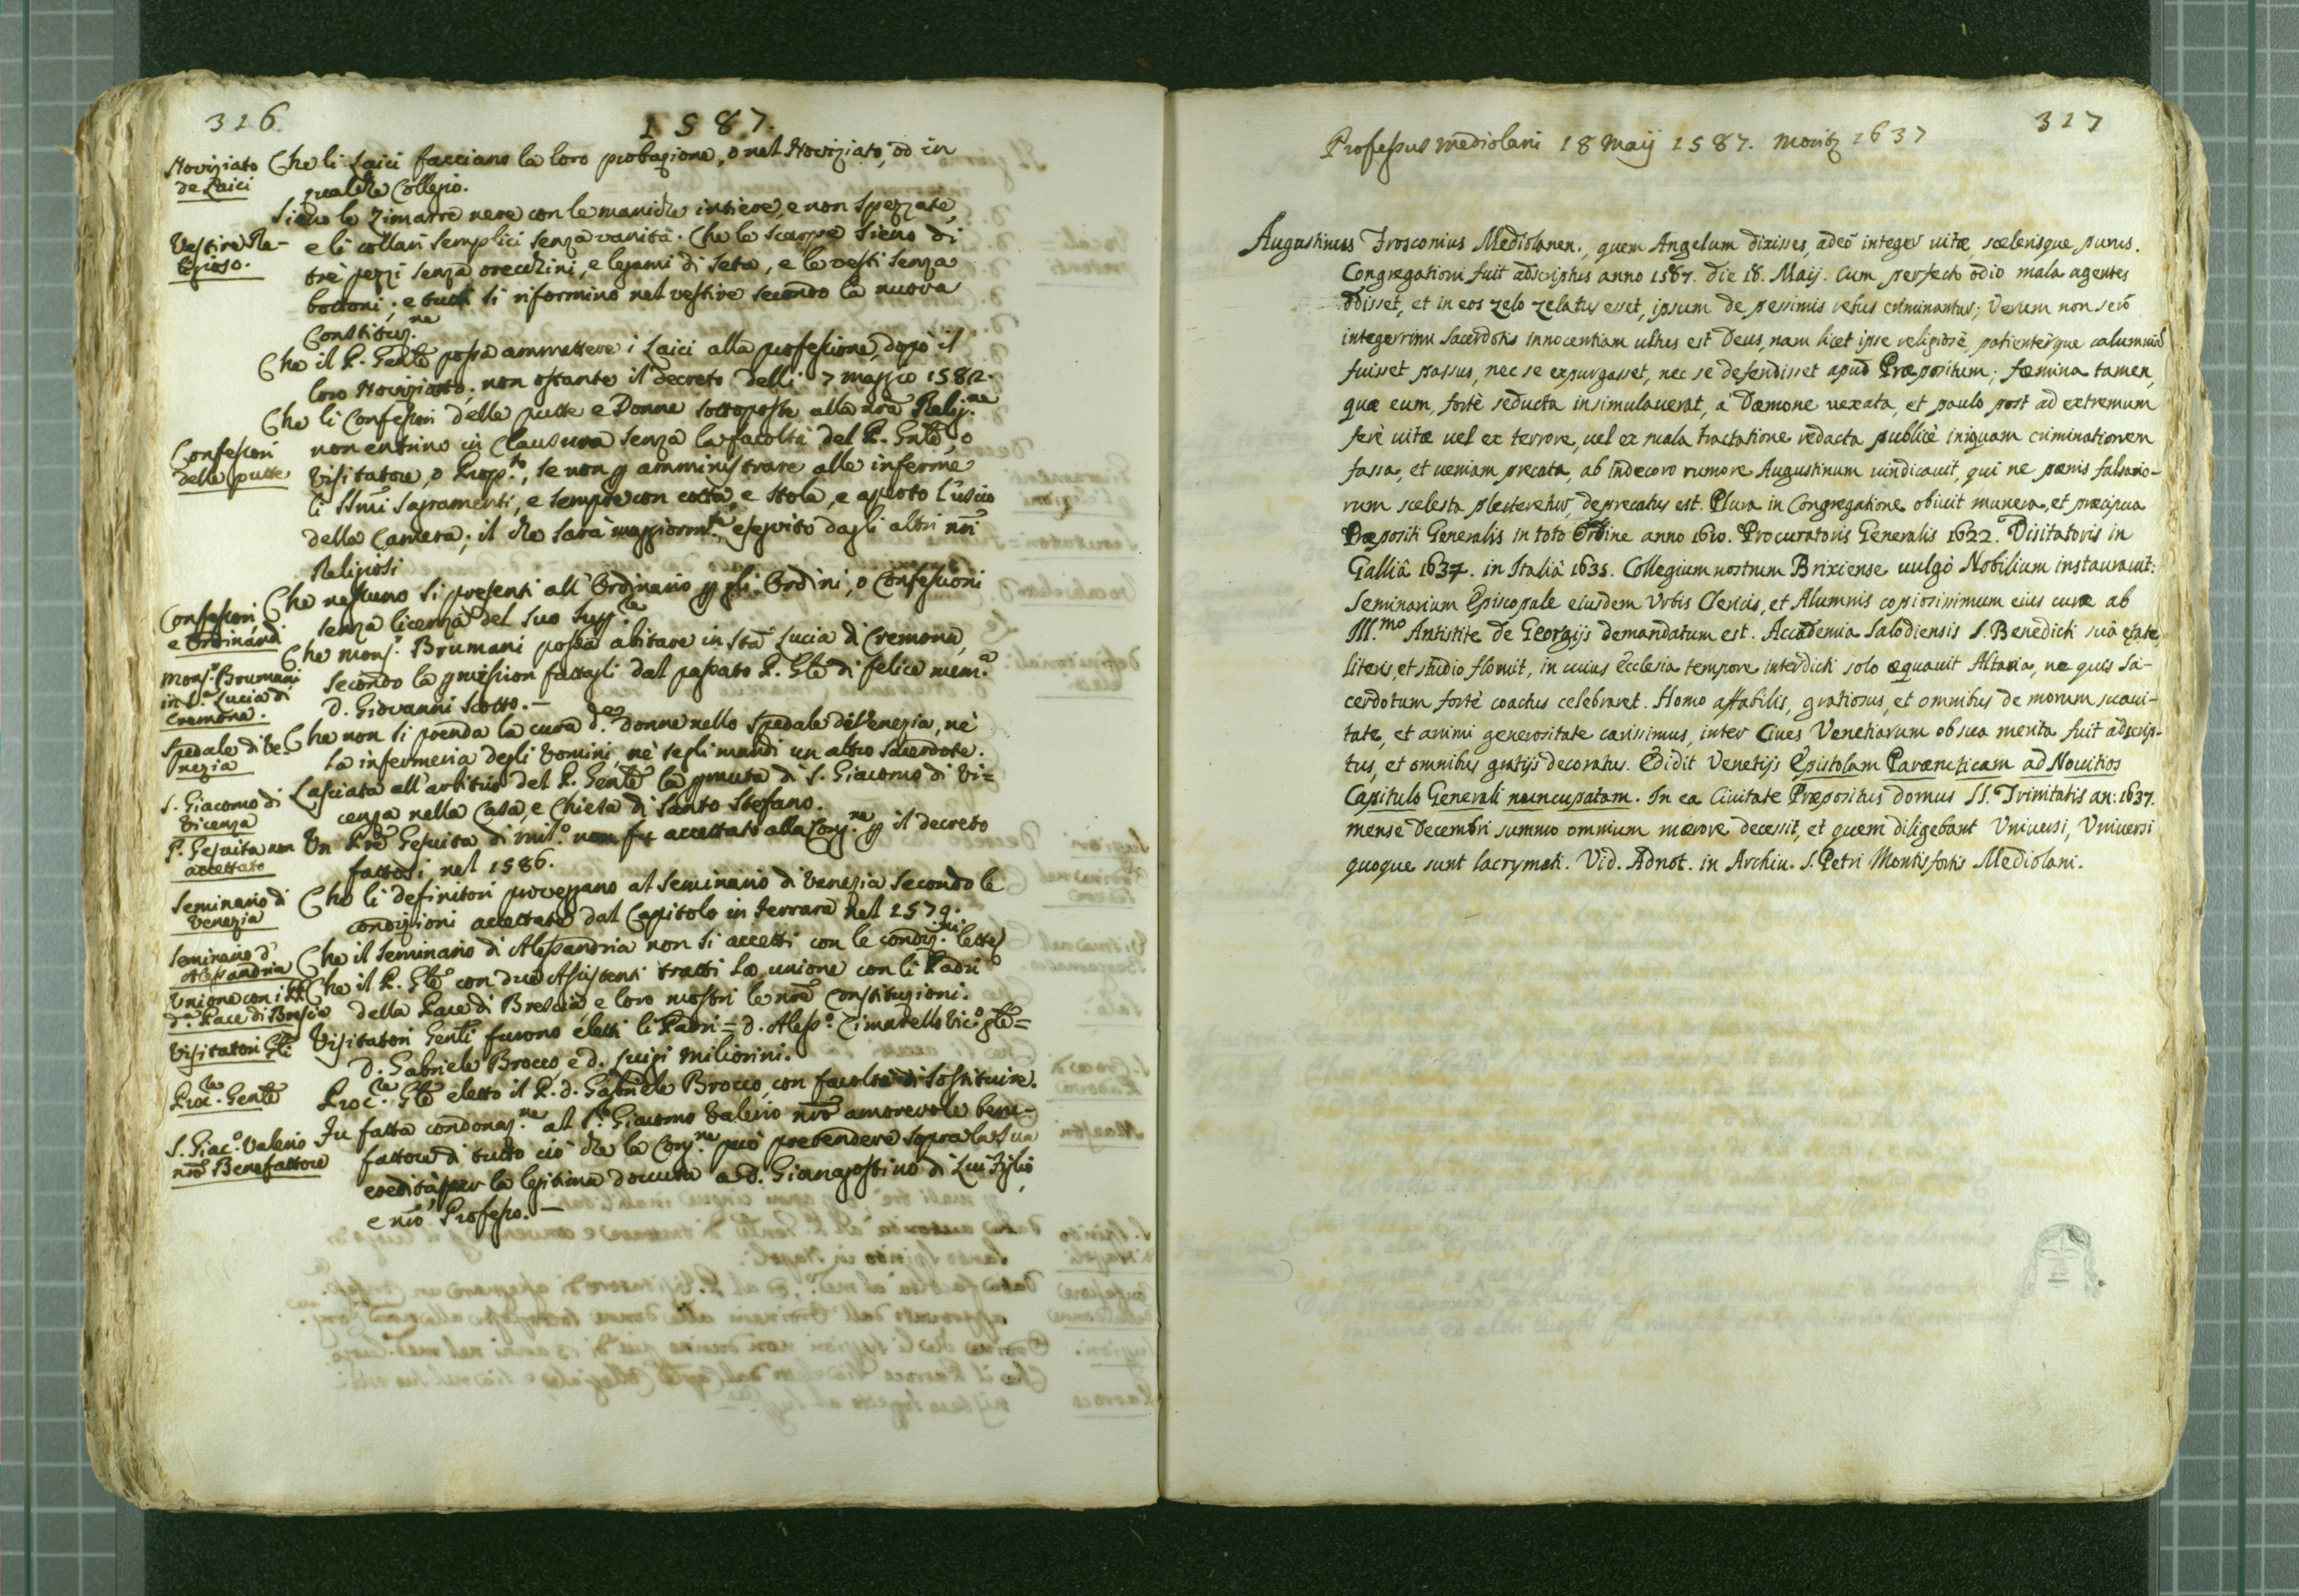 316.
1587.
Noviziato
de Laici
Che li Laici facciano la loro probazione, o nel Noviziato, od in
qualche Collegio.
Vestire Re-
ligioso.
Sieno le Zimarre nere con le maniche intiere, e non spezzate,
e li collari semplici senza vanità. Che le scarpe sieno di
trè pezzi senza orecchini, e legami di seta, e le vesti senza
bottoni; e tutti si riformino nel vestire secondo la nuova
Constituz.ne
Che il P. Gen̄le possa ammettere i Laici alla professione, dopò il
loro Noviziato, non ostante il decreto delli 7 maggio 1582.
Confessori
delle putte
Che li Confessori delle putte e Donne sottoposte alla nr̄a Relig.ne
non entrino in Clausura senza la facoltà del P. Gn̄le, o
Visitatore, o Prep.to, se non p amministrare alle inferme
li SSm̄i Sagramenti, e sempre con cotta, e stola, e aperto l'uscio
della Camera; il che sarà maggiorm.te eseguito dagli altri nr̄i
Religiosi
Confessori
e Ordinandi
Che nessuno si presenti all'Ordinario p gli Ordini, o Confessioni
senza licenza del suo Sup.re
Mons.r Brumani
in S.a Lucia di
Cremona.
Che Mons.r Brumani possa abitare in Sta Lucia di Cremona,
secondo la pmission fattagli dal passato P. Gl̄e di felice mem.a
D. Giovanni Scotto.—
Spedale di Ve-
nezia
Che non si prenda la cura d.e donne nello Spedale di Venezia, nè
la infermeria degli Uomini, nè segli mandi un altro sacerdote.
S. Giacomo di
Vicenza
Lasciata all'arbitrio del P. Gen̄le la pmuta di S. Giacomo di Vi=
cenza nella Casa, e Chiesa di Santo Stefano.
P. Gesuita non
accettato
Un Pr̄e Gesuita di Mil.o non fu accettato alla Cong.ne p il decreto
fattosi nel 1586.
Seminario di
Venezia
Che li definitori proveggano al Seminario di Venezia secondo le
condizioni accettate dal Capitolo in Ferrara nel 1579.
Seminario d'
Alessandria
Che il Seminario di Alessandria non si accetti con le condiz.ni lette
Unione con i PP.
d.a Pace di Brescia
Che il P. Gl̄e con due Assistenti tratti la unione con li Padri
della Pace di Brescia e loro mostri le nr̄e Constituzioni.
Visitatori Gl̄i
Visitatori Gen̄li furono eletti li Padri = D. Aless.o Cimarello Vic.o gl̄e =
D. Gabriele Brocco, e D. Luigi Migliorini.
Proc.re Gen̄le
Proc.re Gl̄e eletto il P. D. Gabriele Brocco, con facoltà di sostituire.
S. Giac.o Valerio
nr̄o Benefattore
Fu fatta condonaz.ne al S.r Giacomo Valerio nr̄o amorevole bene-
fattore di tutto ciò che la Cong.ne può pretendere sopra la sua
eredità per la legitima dovuta a D. Gianagostino di Lui Figlio,
e nr̄o Professo.—
317
Professus Mediolani 18 Maij 1587. Moritur 1637
Augustinus Frosconius Mediolanen., quem Angelum dixisses, adeò integer uitæ, scelerisque purus.
Congregationi fuit adscriptus anno 1587. die 18. Maij. Cum perfecto odio mala agentes
odisset, et in eos zelo zelatus esset, ipsum de pessimis rebus criminantur; Verum non serò
integerrimi Sacerdotis innocentiam ultus est Deus, nam licet ipse religiosè, patienterque calumniã
fuisset passus, nec se expurgasset, nec se defendisset apud Præpositum; fæmina tamen,
quæ eum, fortè seducta insimulauerat, à Dæmone uexata, et paulo post ad extremum
ferè uitæ uel ex terrore, uel ex mala tractatione redacta publicè iniquam criminationem
fassa, et ueniam precata, ab indecoro rumore Augustinum uindicauit, qui ne pænis falsario-
rum scelesta plecteretur, deprecatus est. Plura in Congregatione obiuit munera, et præcipua
Præpositi Generalis in toto Ordine anno 1610. Procuratoris Generalis 1622. Visitatoris in
Galliâ 1637. in Italiâ 1635. Collegium nostrum Brixiense uulgò Nobilium instaurauit:
Seminarium Episcopale eiusdem Vrbis Clericis, et Alumnis copiosissimum eius curæ ab
Ill.mo Antistite de Georgijs demandatum est. Accademia Salodiensis S. Benedicti suâ ætate,
literis, et studio floruit, in cuius Ecclesia tempore interdicti solo æquauit Altaria, ne quis Sa-
cerdotum fortè coactus celebraret. Homo affabilis, gratiosus, et omnibus de morum suaui-
tate, et animi generositate carissimus, inter Ciues Venetiarum ob sua merita fuit adscrip-
tus, et omnibus gratijs decoratus. Edidit Venetijs Epistolam Parænetticam ad Nouitios
Capitulo Generali nuncupatam. In ea Ciuitate Præpositus domus SS. Trinitatis an: 1637.
mense Decembri summo omnium mærore decessit, et quem diligebant Vniuersi, Vniuersi
quoque sunt lacrymati. Vid. Adnot. in Archiu. S. Petri Montisfortis Mediolani.